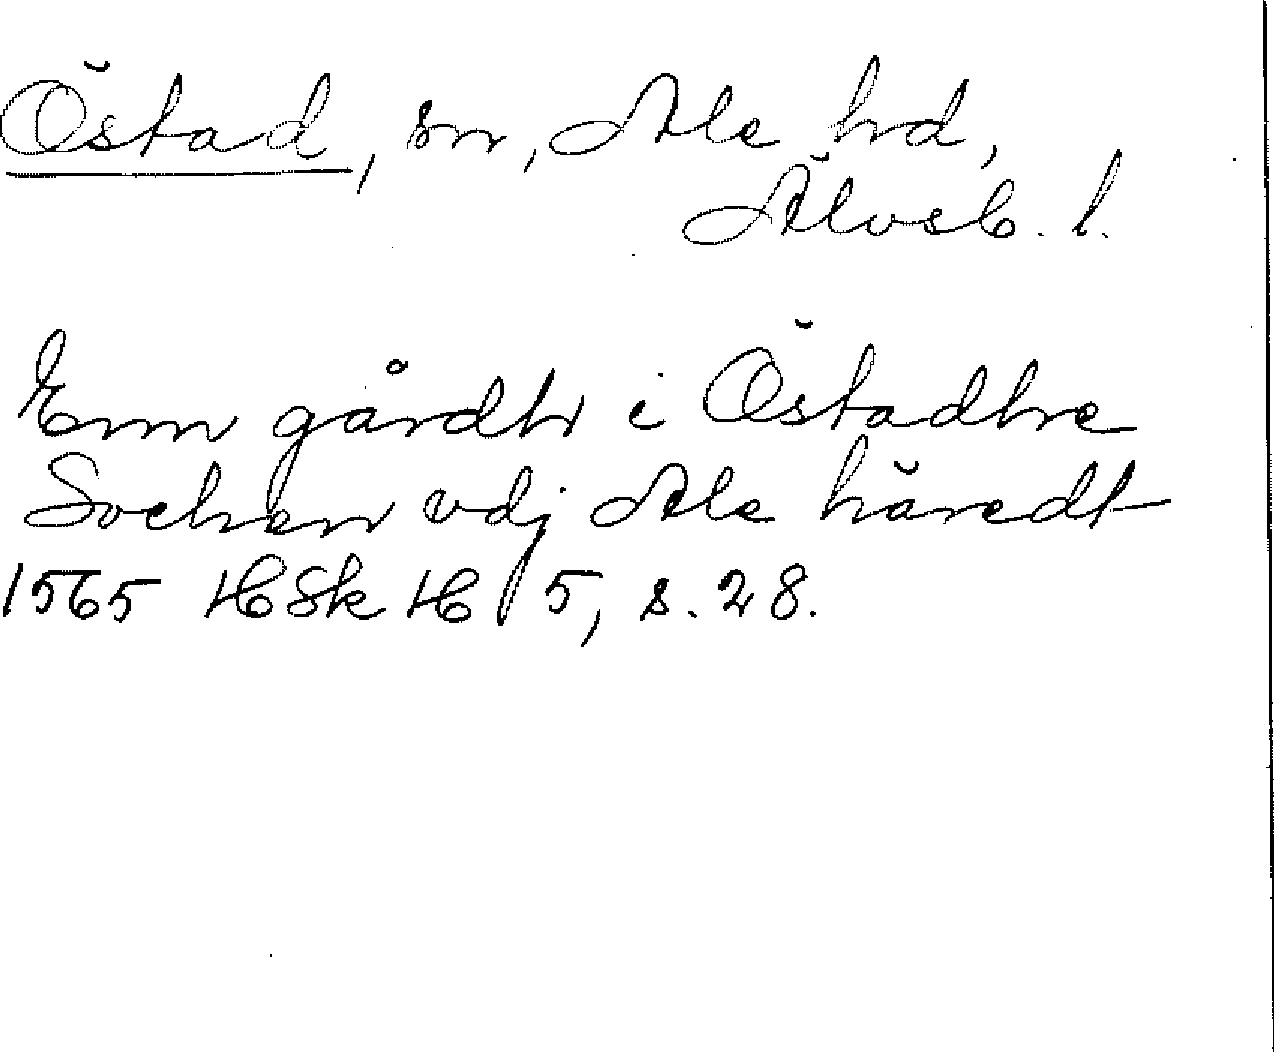 Östad, sn, Ale hd,
Älvsb. l.
Enn gårdh i Östadhe
Sochen vdj Ale häredt
1565 HSkH 5, s. 28.